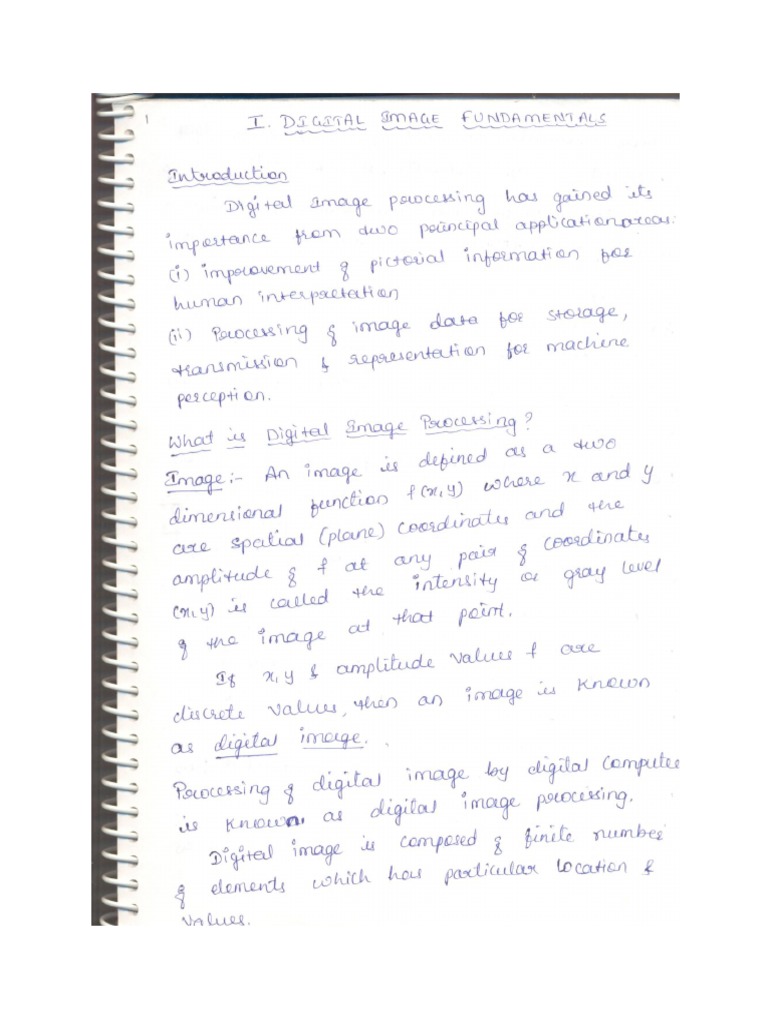 1
I. DIGITAL IMAGE FUNDAMENTALS
Introduction
Digital Image processing has gained its
importance from two principal application areas:
(i) improvement of pictorial information for
human interpretation
(ii) Processing of image data for storage,
transmission & representation for machine
perception.
What is Digital Image Processing?
Image:- An image is defined as a two
dimensional function f(x,y) where x and y
are spatial (plane) coordinates and the
amplitude of f at any pair of coordinates
(x,y) is called the intensity or gray level
of the image at that point.
If x,y & amplitude values f are
discrete values, then an image is known
as digital image.
Processing of digital image by digital computer
is known as digital image processing.
Digital image is composed of finite number
of elements which has particular location &
values.